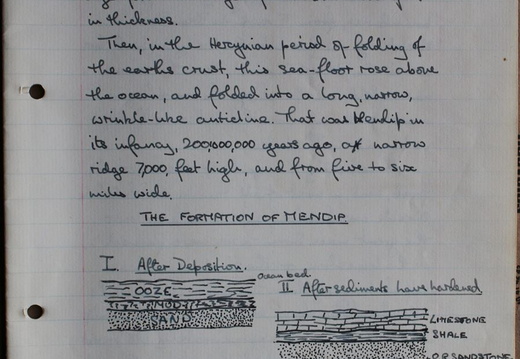 in thickness.
Then, in the Hercynian period of folding of
the earths crust, this sea-floor rose above
the ocean, and folded into a long, narrow,
wrinkle-like anticline. That was Mendip in
its infancy, 200,000,000 years ago, a narrow
ridge 7,000, feet high, and from five to six
miles wide.
THE FORMATION OF MENDIP
I. After Deposition.
ocean bed
OOZE
MUD
SAND
II After sediments have hardened
LIMESTONE
SHALE
O.R.SANDSTONE